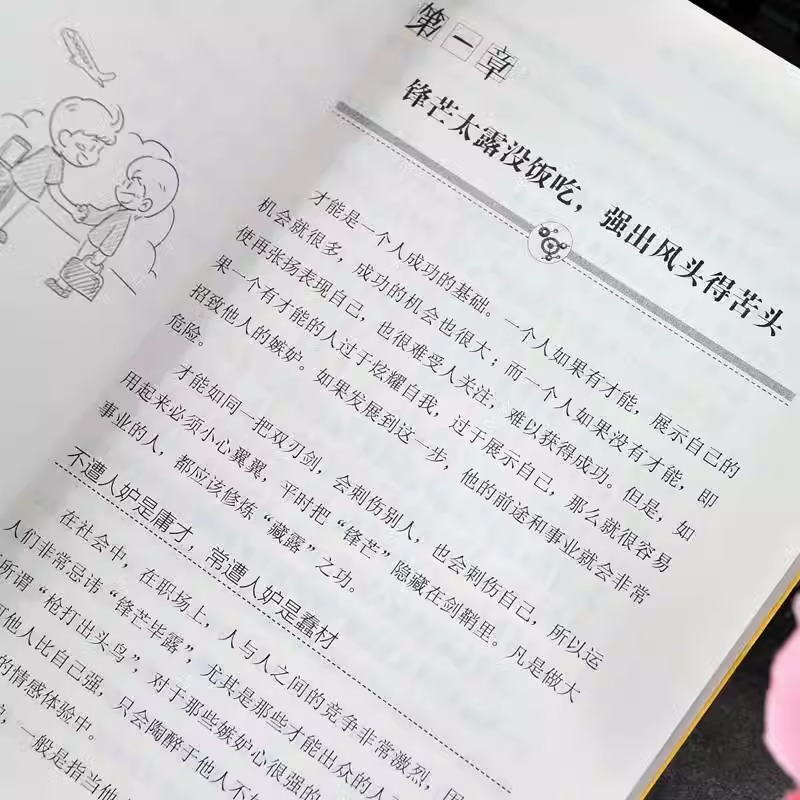 第一章
锋芒太露没饭吃，强出风头得苦头
才能是一个人成功的基础。一个人如果有才能，展示自己的
机会就很多，成功的机会也很大；而一个人如果没有才能，即
使再张扬表现自己，也很难受人关注，难以获得成功。但是，如
果一个有才能的人过于炫耀自我，过于展示自己，那么就很容易
招致他人的嫉妒。如果发展到这一步，他的前途和事业就会非常
危险。
才能如同一把双刃剑，会刺伤别人，也会刺伤自己，所以运
用起来必须小心翼翼，平时把“锋芒”隐藏在剑鞘里。凡是做大
事业的人，都应该修炼“藏露”之功。
不遭人妒是庸才，常遭人妒是蠢材
在社会中，在职场上，人与人之间的竞争非常激烈，因
人们非常忌讳“锋芒毕露”，尤其是那些才能出众的人
所谓“枪打出头鸟”，对于那些嫉妒心很强的
他人比自己强，只会陶醉于他人不
的情感体验中。
，一般是指当他